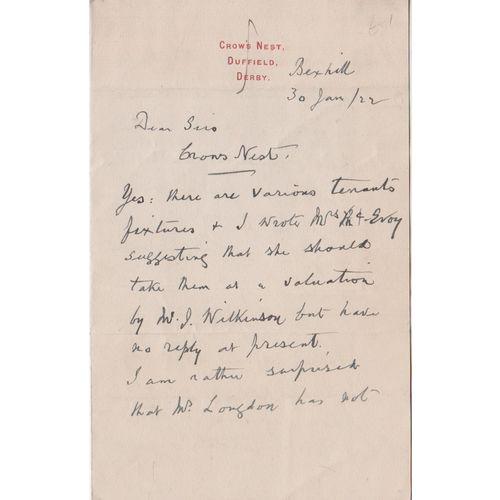 Crow's Nest,
Duffield,
Derby.
Bexhill
30 Jan/22
Dear Sirs
Crows Nest.
Yes: there are various tenants
fixtures & I wrote Mrs McEvoy
suggesting that she should
take them at a valuation
by Mr. J. Wilkinson but have
no reply at present.
I am rather surprised
that Mr. Longdon has not